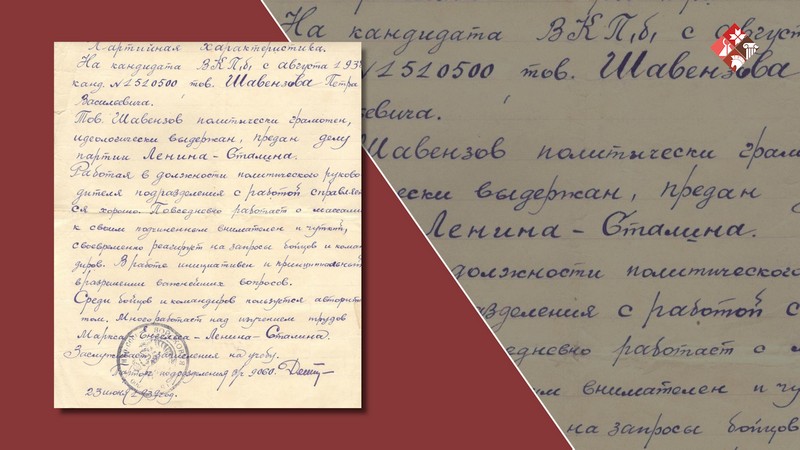 Партийная характеристика.
На кандидата ВКП/б/ с августа 193
канд. № 1510500 тов. Шавензова Петра
Васильевича.
Тов. Шавензов политически грамотен,
идеологически выдержан, предан делу
партии Ленина-Сталина.
Работая в должности политического руково-
дителя подразделения с работой справляет-
ся хорошо. Повседневно работает с массами
к своим подчиненным внимателен и чуткий,
своевременно реагирует на запросы бойцов и коман-
диров. В работе инициативен и принципиальный
в разрешении важнейших вопросов.
Среди бойцов и командиров пользуется авторите-
том. Много работает над изучением трудов
Маркса-Энгельса-Ленина-Сталина.
Заслуживает зачисления на учебу.
подразделения
23 июня 1939 год.
На кандидата ВКП/б/ с август
№ 1510500 тов. Шавензова
евича.
Шавензов политически грам
чески выдержан, предан
Ленина-Сталина.
должности политического
разделения с работой с
едневно работает с м
м внимателен и чут
на запросы бойцов